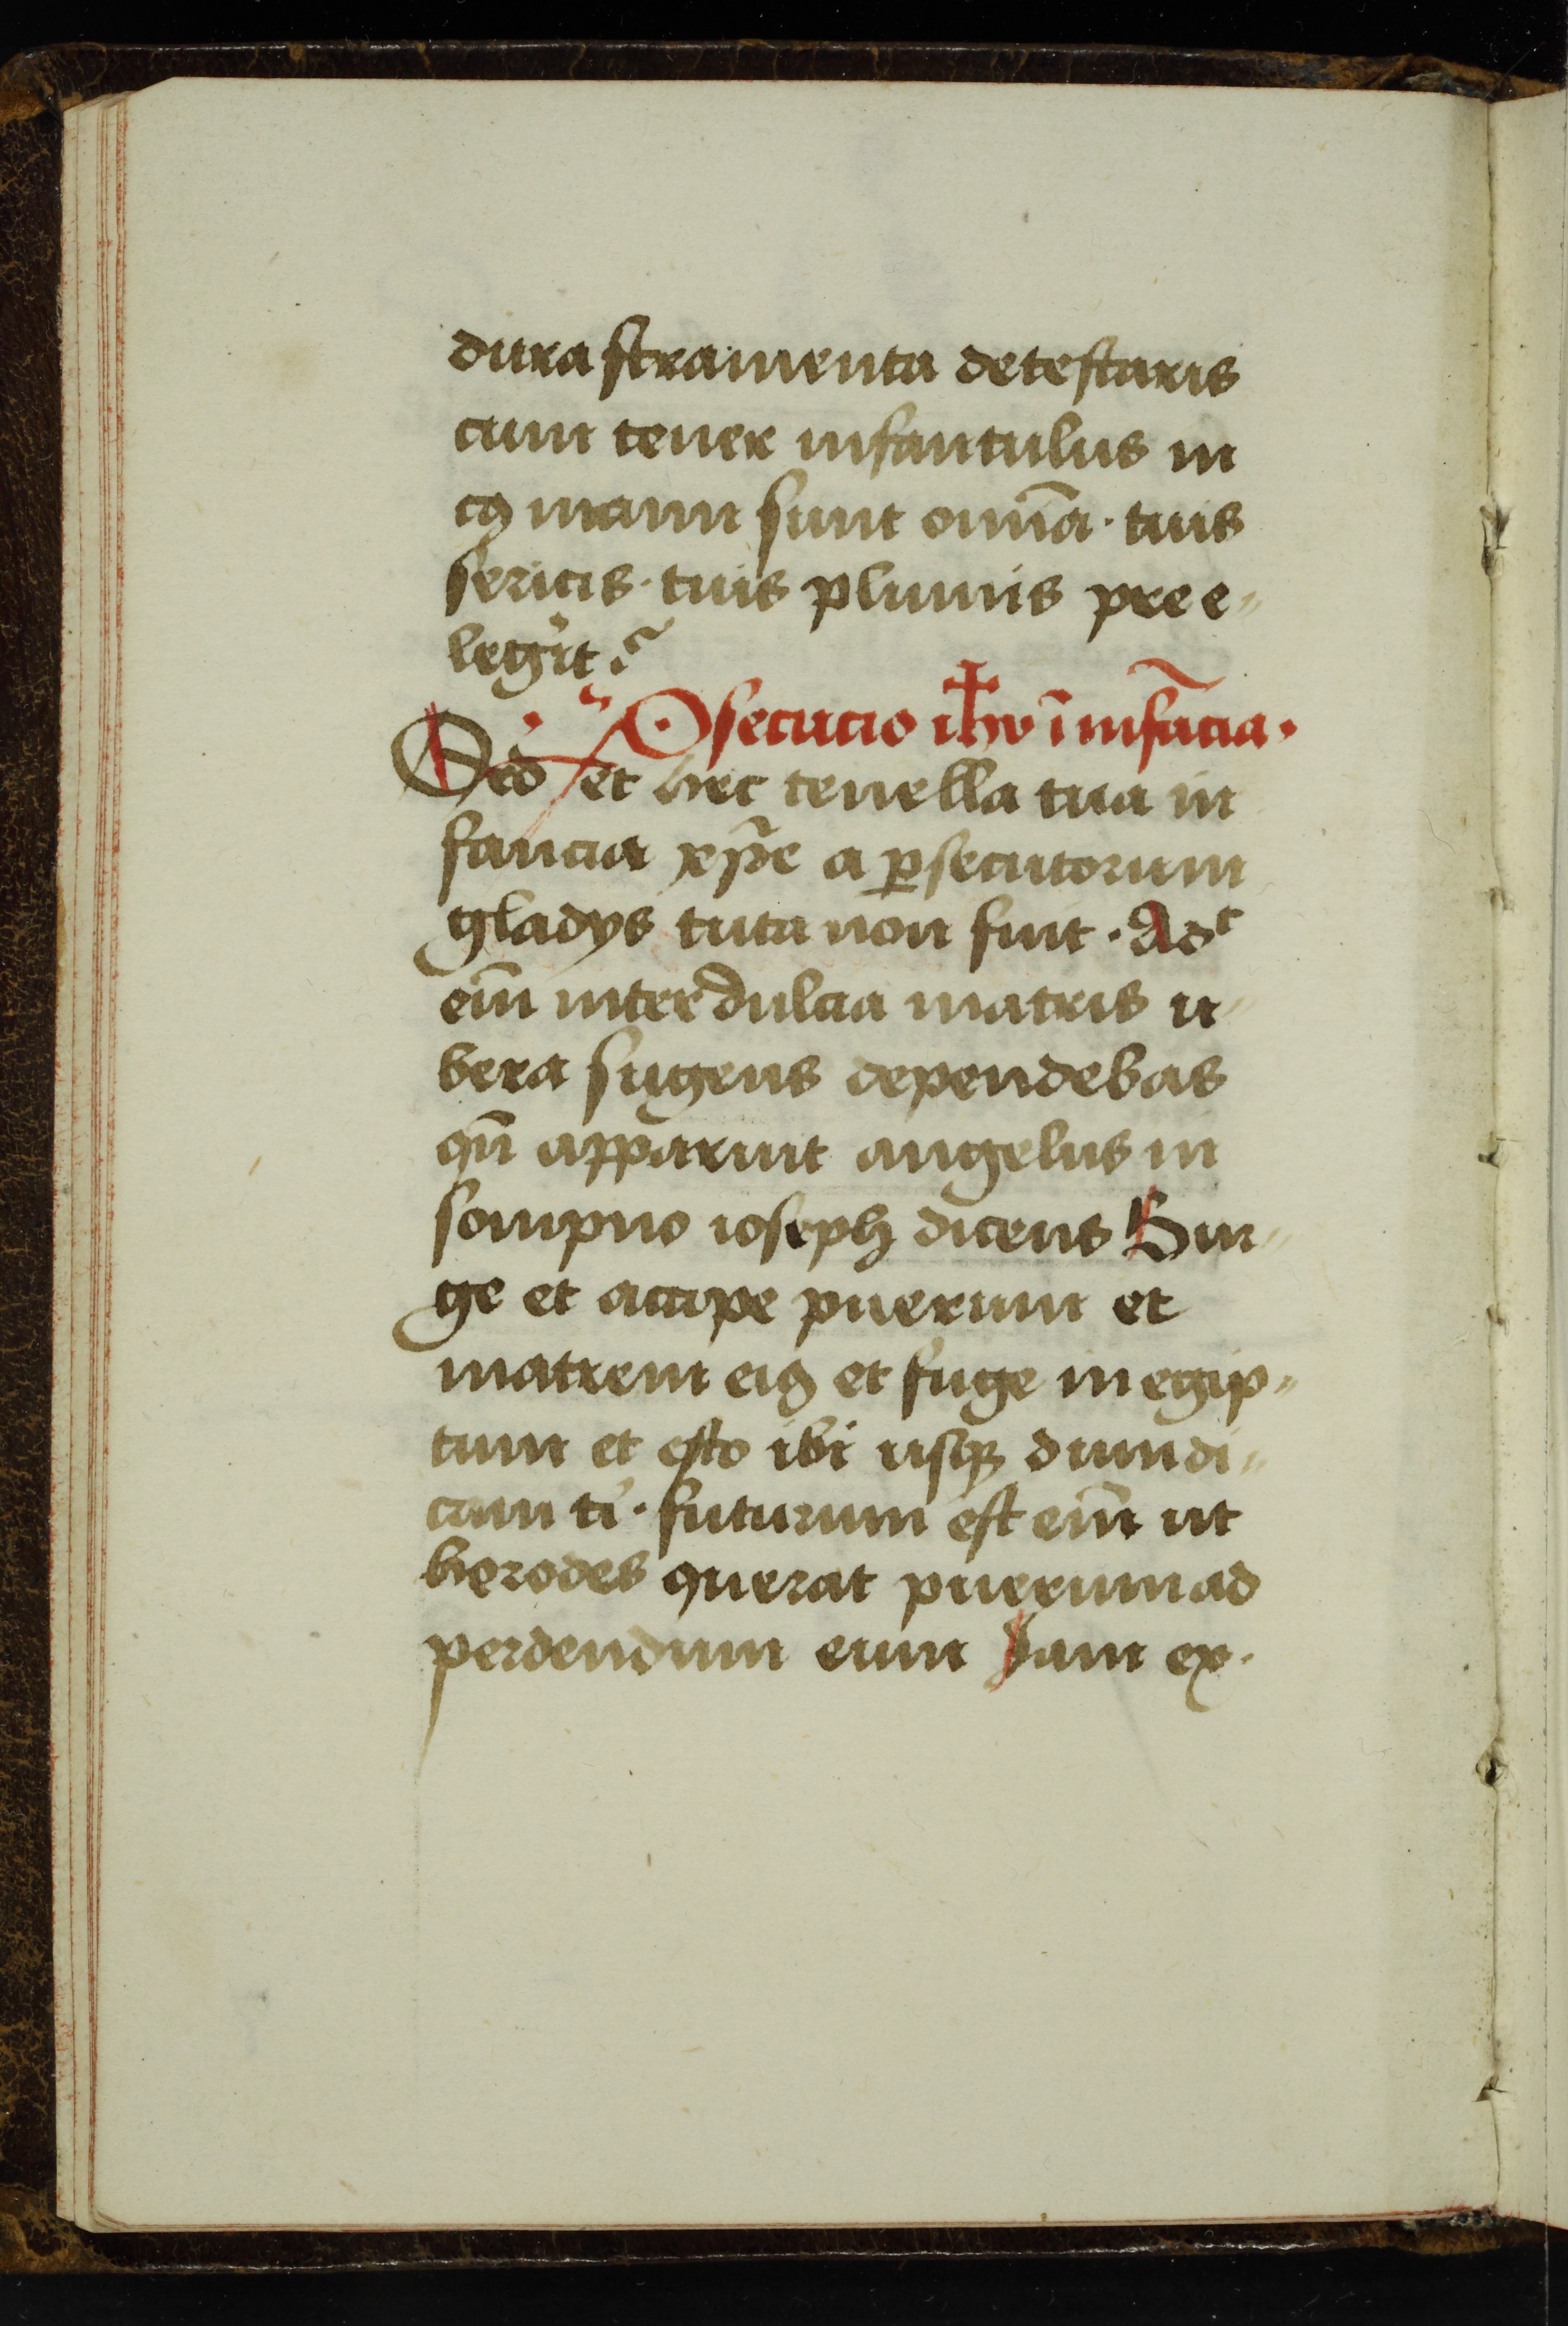 dura stramenta detestaris
cum tener infantulus in
cꝯ manu sunt om̄ia · tuis
sericis · tuis plumis pree„
legit ?
Ꝑsecucio ih̅u ī infācia ·
Sed et hec tenella tua in
fancia xp̄e a ꝑsecutorum
gladys tuta non fuit · Adᶜ
em̄ inter dulcia matris u„
bera sugens dependebas
qn̄ apparuit angelus in
sompno ioseph dicens Sur„
ge et accipe puerum et
matrem eiꝯ et fuge in egip„
tum et esto ibi usqꝫ dum di„
cam ti · futurum est em̄ ut
herodes querat puerum ad
perdendum eum Iam ex·